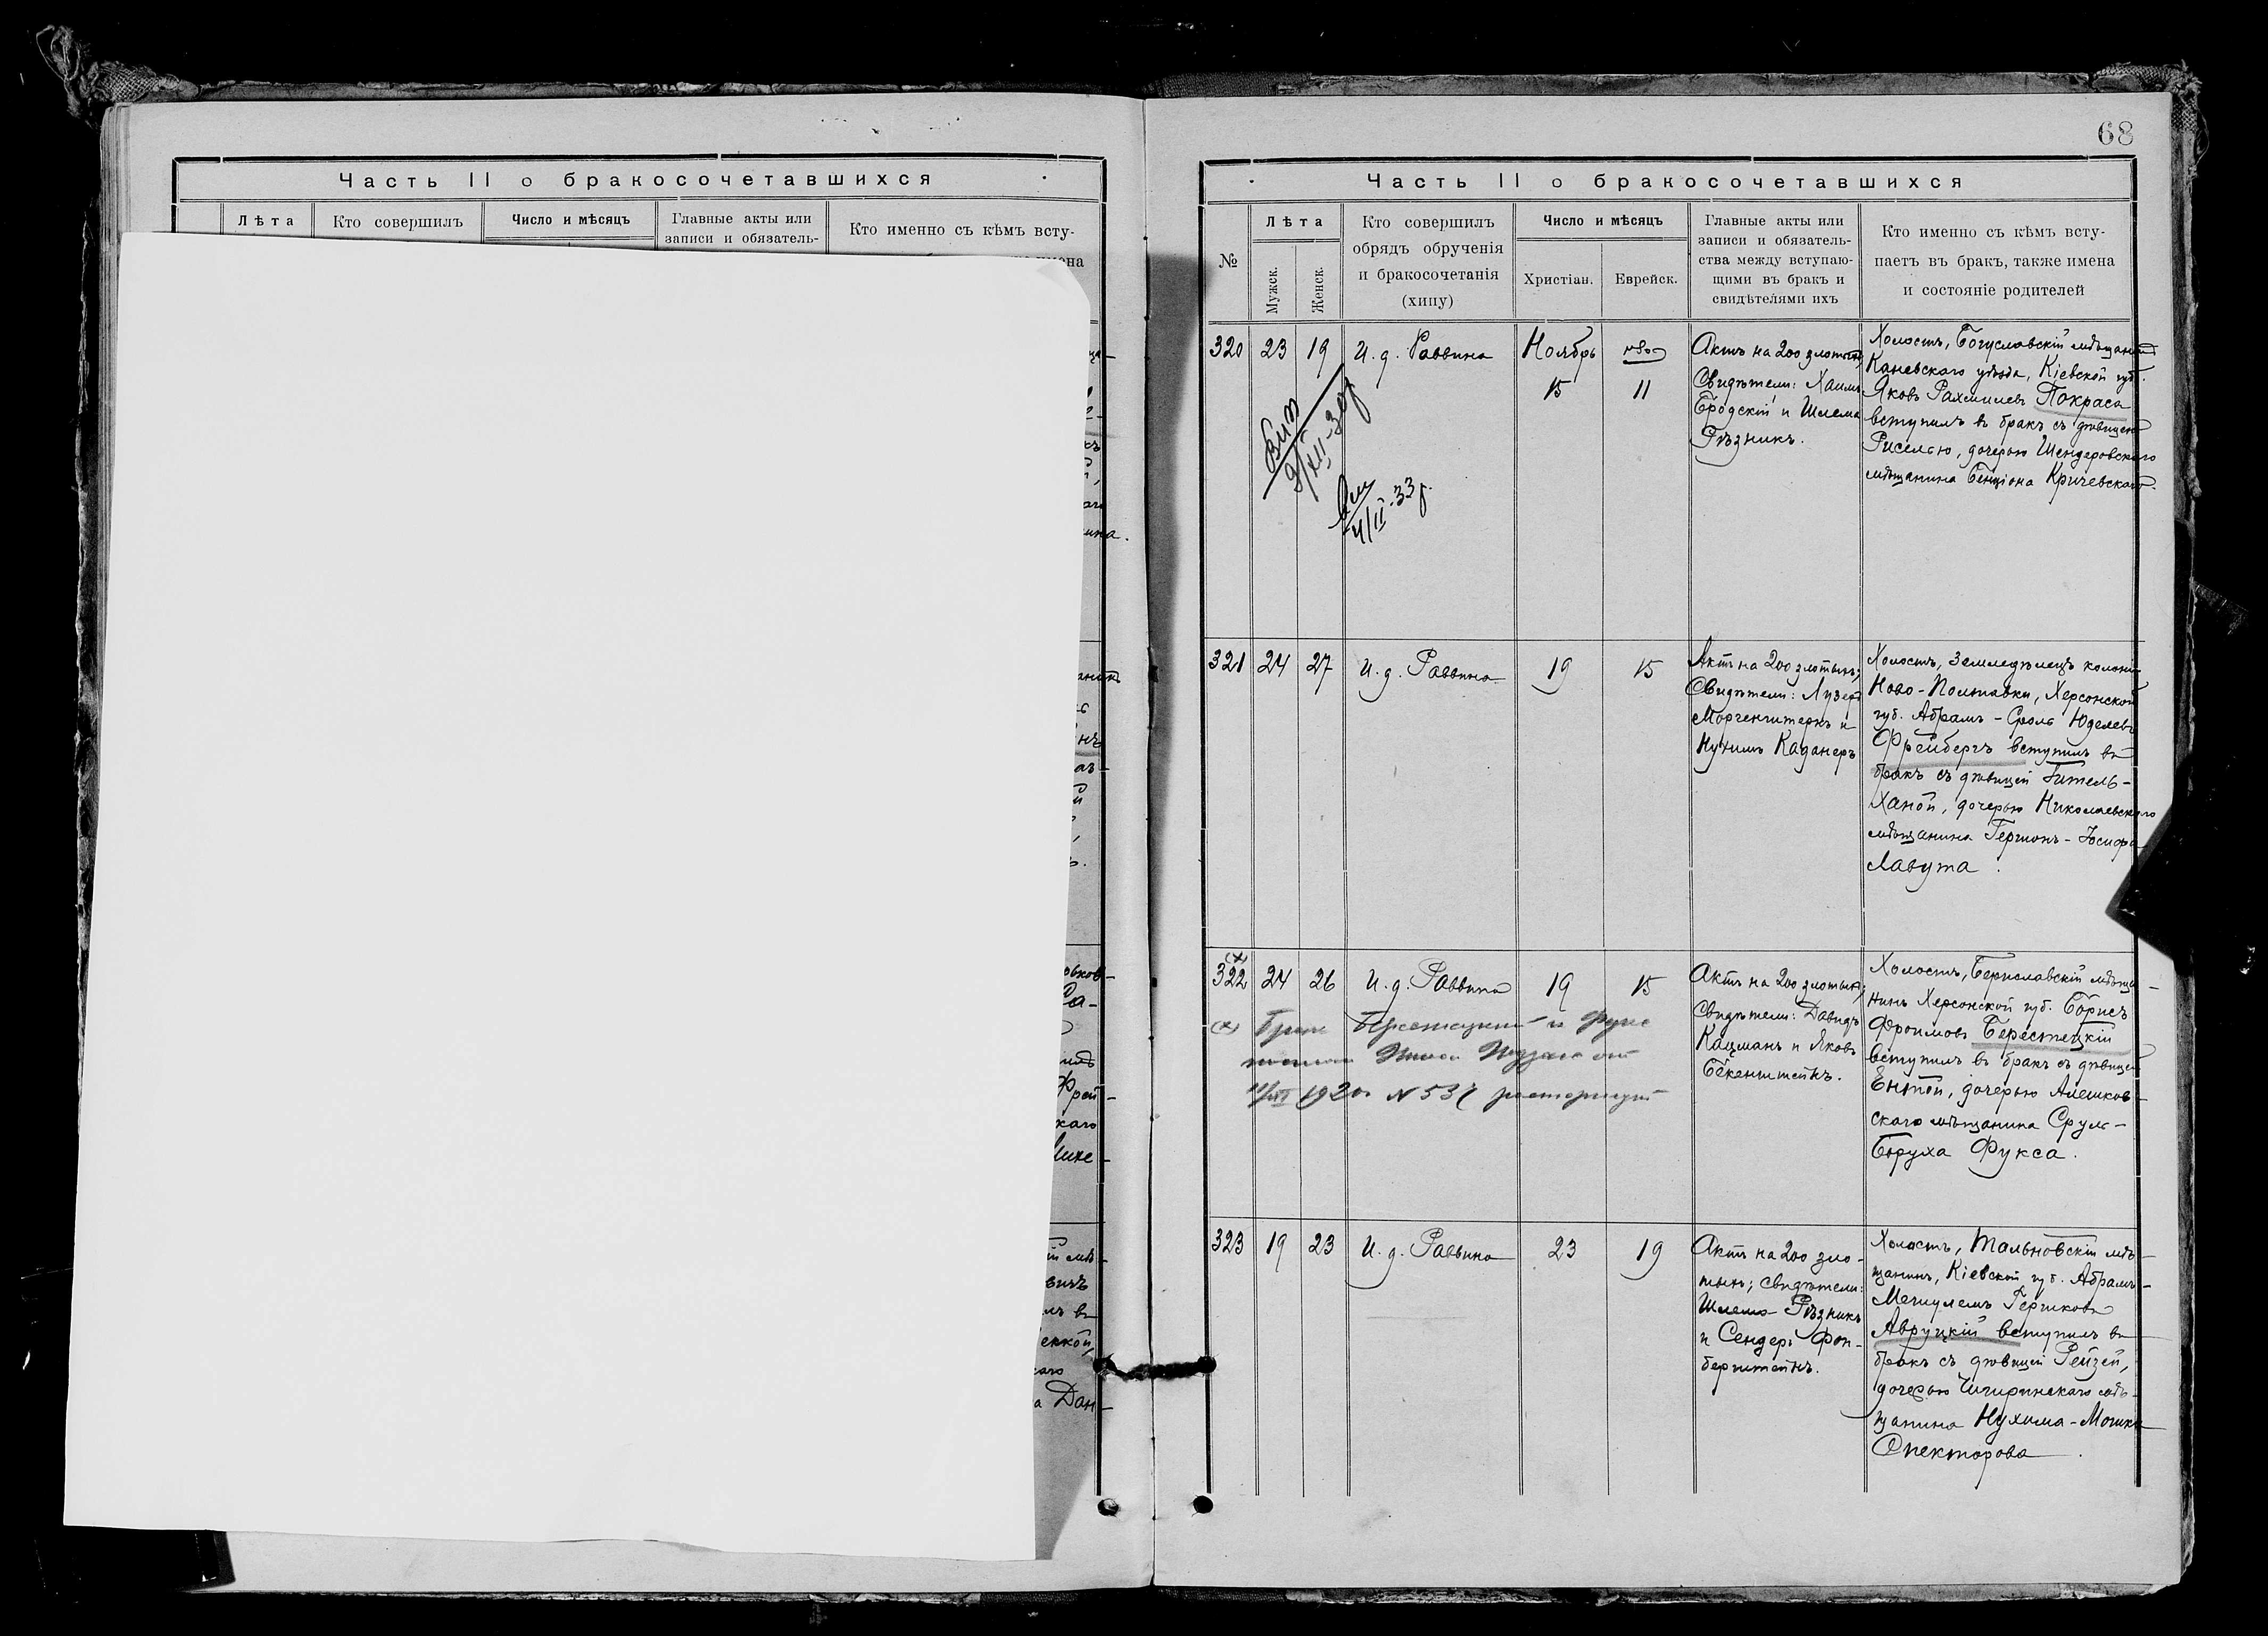 Часть II о бракосочетавшихся
Лѣта
Кто совершилъ
Число и мѣсяцъ
Главные акты или
записи и обязатель-
Кто именно съ кѣмъ всту-
68
Часть II о бракосочетавшихся
№
Лѣта
Мужск.
Женск.
Кто совершилъ
обрядъ обрученія
и бракосочетанія
(хипу)
Число и мѣсяцъ
Христіан.
Еврейск.
Главные акты или
записи и обязатель-
ства между вступаю-
щими въ бракъ и
свидѣтелями ихъ
Кто именно съ кѣмъ всту-
паетъ въ бракъ, также имена
и состояніе родителей
320
23
19
И. д. Раввина
Ноябрь
15
11
Актъ на 200 злотыхъ;
Свидѣтели: Хаимъ
Бродскій и Шлема
Рѣзникъ.
Холостъ, Богуславскій мѣщанинъ
Каневскаго уѣзда, Кіевской губ.
Яковъ Рахмилевъ Покраса
вступилъ въ бракъ съ дѣвицею
Риселью, дочерью Шендеровскаго
мѣщанина Бенціона Кричевскаго.
9/XII-30г
4/II-33г.
321
24
27
И. д. Раввина
19
15
Актъ на 200 злотыхъ;
Свидѣтели: Лузеръ
Моргенштернъ и
Нухимъ Каданеръ
Холостъ, земледѣлецъ колоніи
Ново-Полтавки, Херсонской
губ. Абрамъ-Сроль Юделевъ
Фрейбергъ вступилъ въ
бракъ съ дѣвицей Гитель-
Ханой, дочерью Николаевскаго
мѣщанина Гершонъ-Іосифа
Лавута.
(х)
322
24
26
И. д. Раввина
19
15
Актъ на 200 злотыхъ;
Свидѣтели: Давидъ
Кацманъ и Яковъ
Бекенштейнъ.
Холостъ, Бериславскій мѣща-
нинъ Херсонской губ. Борисъ
Фроимовъ Берестецкій
вступилъ въ бракъ съ дѣвицей
Ентой, дочерью Алешков-
скаго мѣщанина Сруль-
Боруха Фукса.
(х) Брак Берестецкий и Фукс
1920 N 531 расторгнут
323
19
23
И. д. Раввина
23
19
Актъ на 200 зло-
тыхъ; свидѣтели:
Шлема Рѣзникъ
и Сендеръ Фон-
берштейнъ.
Холостъ, Тальновскій мѣ-
щанинъ, Кіевской губ. Абрамъ-
Мешулемъ Гершковъ
Авруцкій вступилъ въ
бракъ съ дѣвицей Рейзей,
дочерью Чигиринскаго мѣ-
щанина Нухима-Мошка
Спекторова.